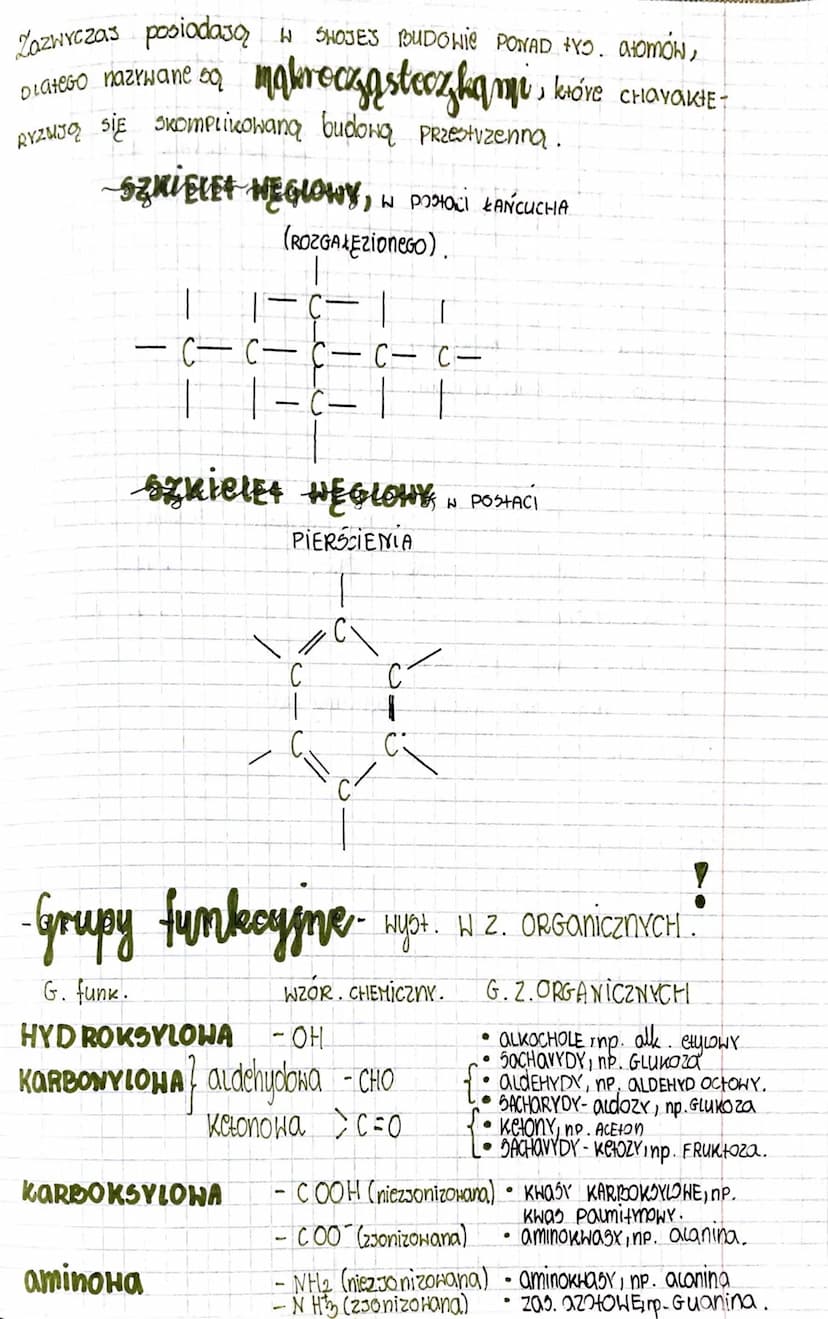 Zazwyczaj posiadają w swojej budowie ponad tys. atomów,
dlatego nazywane są makrocząsteczkami, które charakte-
ryzują się skomplikowaną budową przestrzenną.
SZKIELET WĘGLOWY, w postaci ŁAŃCUCHA
(ROZGAŁĘZIONEGO).
C
C C C C C
C
SZKIELET WĘGLOWY w POSTACI
PIERŚCIENIA
C
C C
C C
C
!
-Grupy funkcyjne- wyst. w z. ORGANICZNYCH.
G. funk. WZÓR. CHEMICZNY. G. Z. ORGANICZNYCH
HYDROKSYLOWA -OH • ALKOCHOLE, np. alk. etylowy
• SACHARYDY, np. GLUKOZA
KARBONYLOWA } aldehydowa -CHO { • ALDEHYDY, NP. ALDEHYD OCTOWY.
• SACHARYDY- aldozy, np. GLUKOZA
ketonowa >C=O { • Ketony, NP. ACETON
• SACHARYDY - ketozy, np. FRUKTOZA.
KARBOKSYLOWA - COOH (niezjonizowana) • KWASY KARBOKSYLOWE, np.
kwas palmitynowy.
- COO⁻ (zjonizowana) • aminokwasy, np. alanina.
aminowa - NH₂ (niezjonizowana) • aminokwasy, np. alanina
- NH₃⁺ (zjonizowana) • zas. azotowe, np. Guanina.